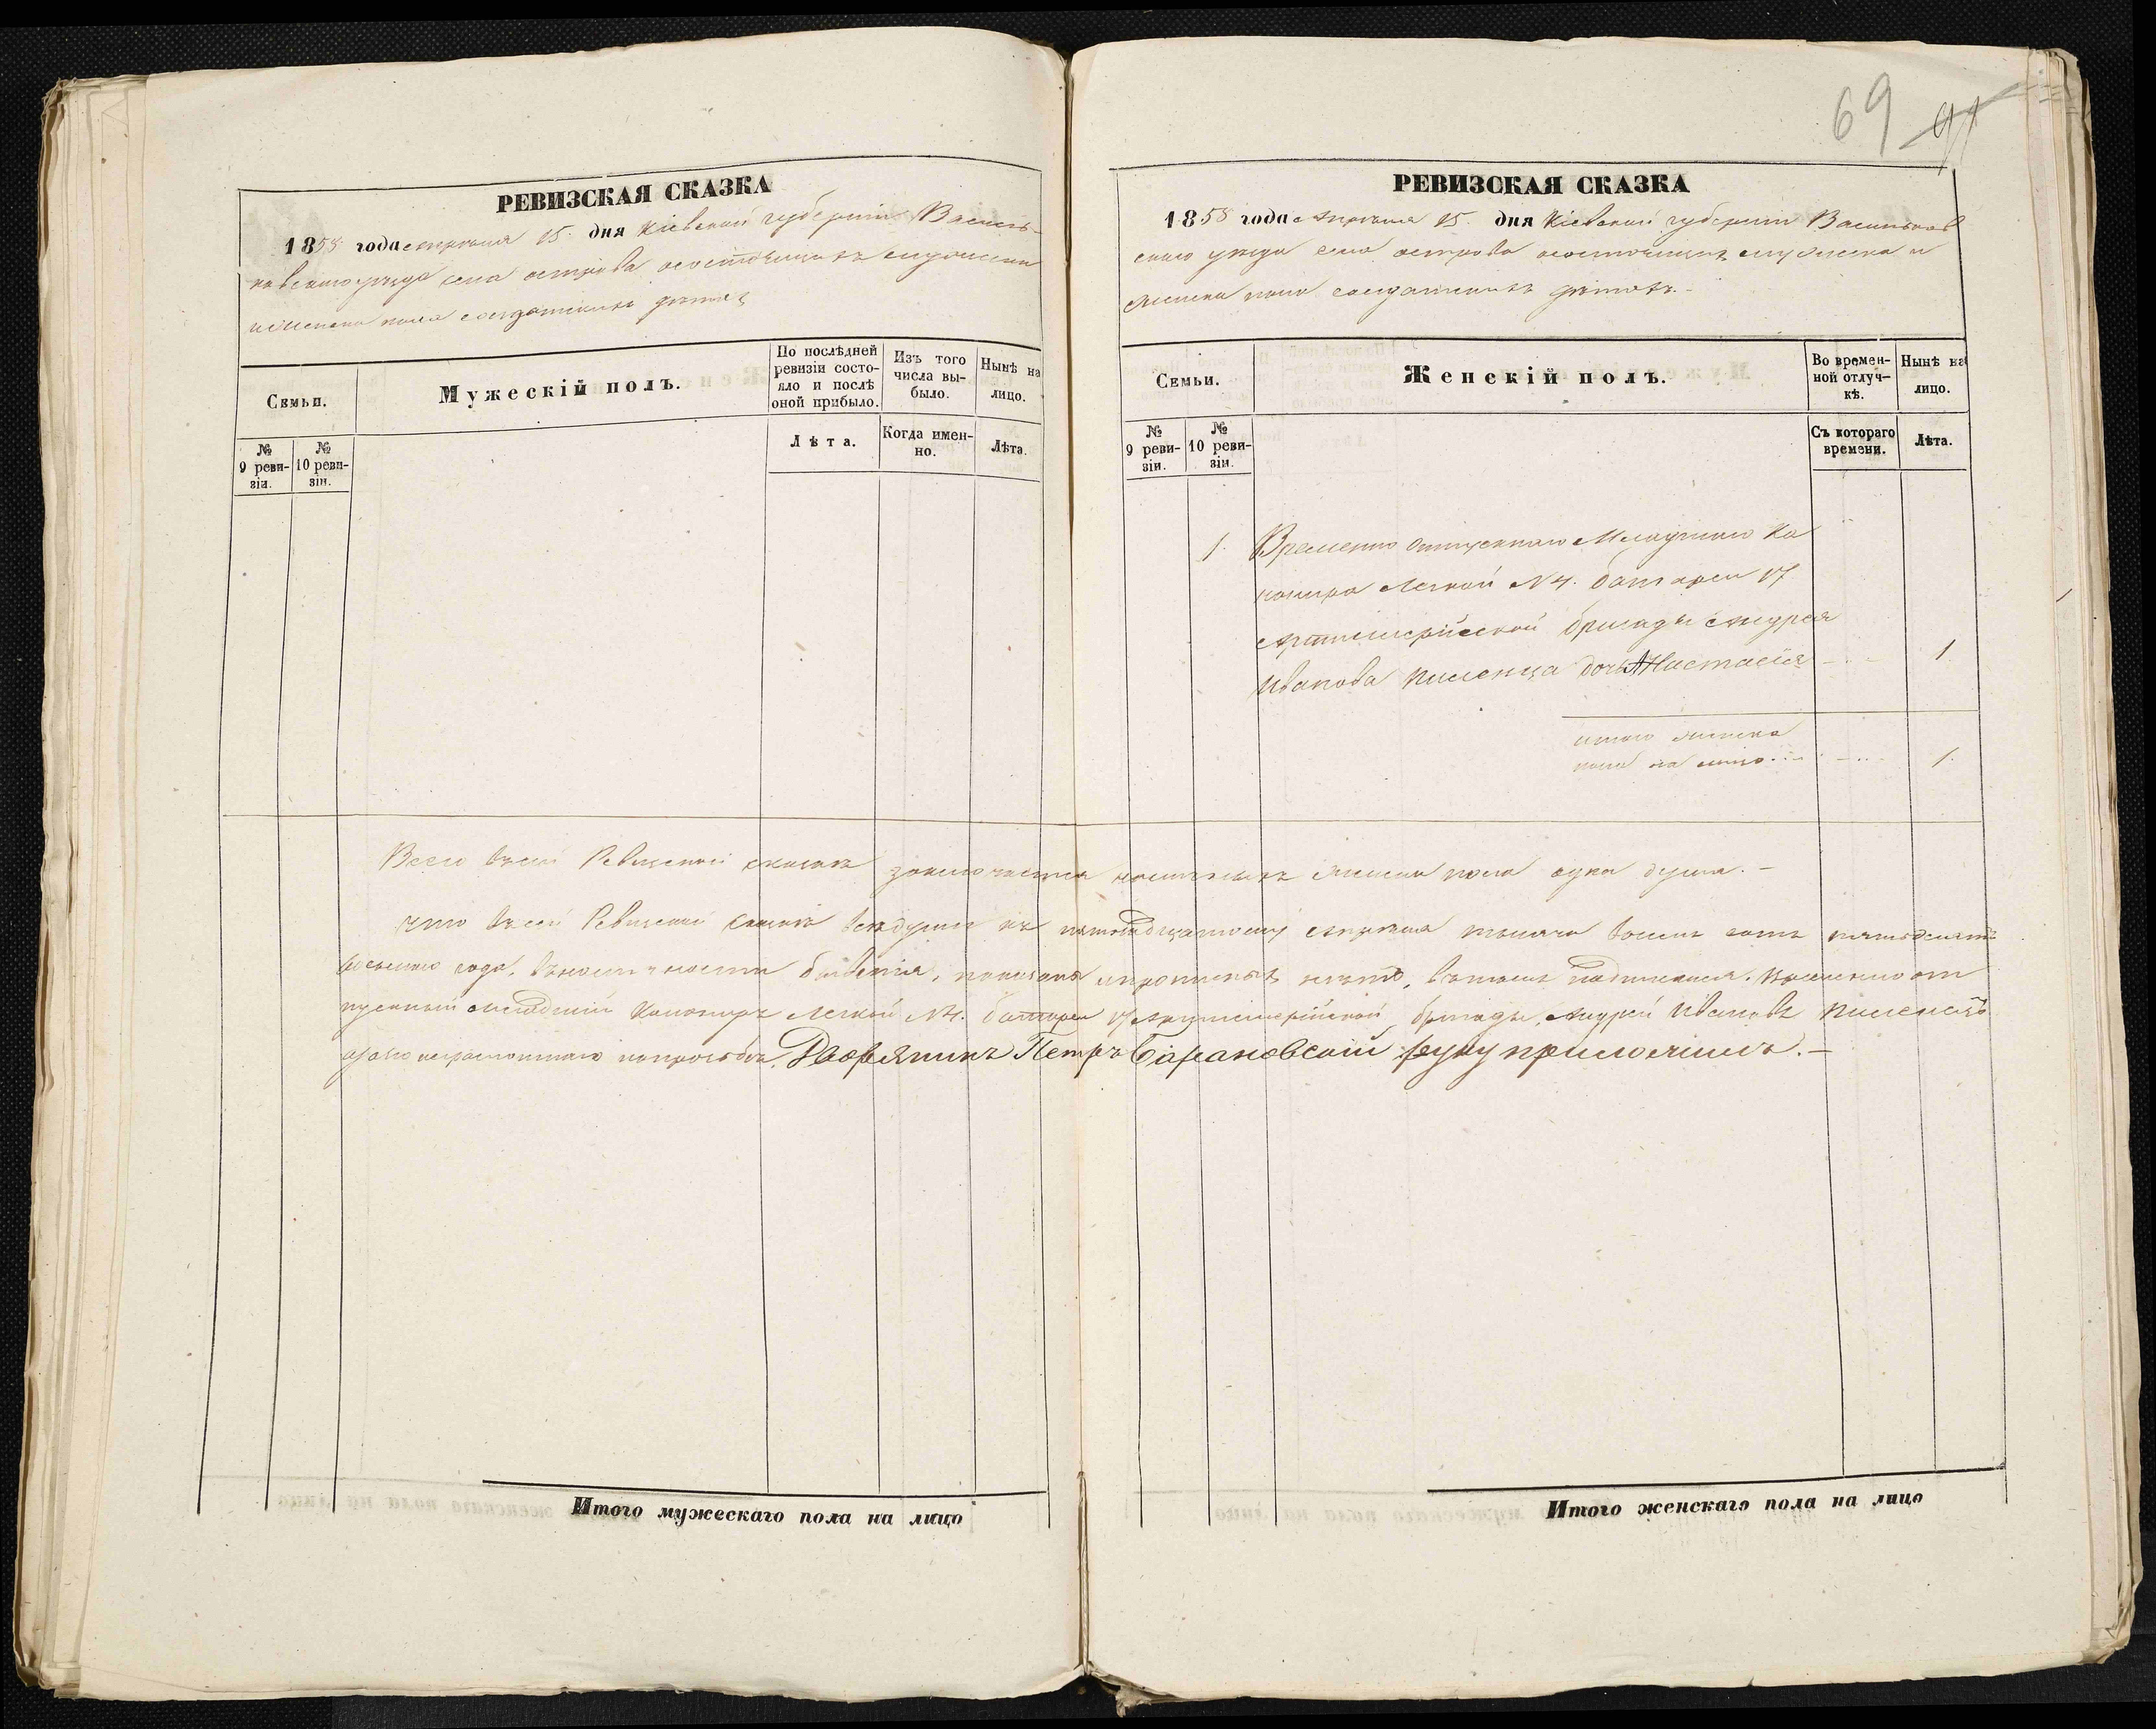 РЕВИЗСКАЯ СКАЗКА
1858 года апрѣля 15 дня Кіевской губерніи Василь-
ковского уѣзда села острова о состоящихъ мужеска
и женска пола солдатскихъ дѣтяхъ
Семьи.
Мужескій полъ.
По послѣдней ревизіи состо-яло и послѣ оной прибыло.
Изъ того числа вы-было.
Нынѣ на лицо.
№ 9 реви-зіи.
№ 10 реви-зіи.
Лѣта.
Когда имен-но.
Лѣта.
Итого мужескаго пола на лицо
69
РЕВИЗСКАЯ СКАЗКА
1858 года апрѣля 15 дня Кіевской губерніи Васильков
скаго уѣзда села острова о состоящихъ мужеска и
женска пола солдатскихъ дѣтяхъ.
Семьи.
Женскій полъ.
Во времен-ной отлуч-кѣ.
Нынѣ на лицо.
№ 9 реви-зіи.
№ 10 реви-зіи.
Съ котораго времени.
Лѣта.
1. Временно отпускнаго Младшаго Ка
нонира Легкой №4. батареи 17
Артиллерійской бригады Андрея
Иванова дочь Анастасія 1
итого женска
пола на лицо 1.
Всего въ сей Ревизской сказкѣ заключается наличныхъ женска пола одна душа.
Что въ сей Ревизской сказкѣ всѣ души къ пятнадцатому апрѣля тысяча восемь сотъ пятьдесятъ
восьмого года, въ наличности показаны и прописныхъ нѣтъ, въ томъ подписался. Временно от
пускный младшій Канониръ Легкой №4. батареи 17 Артиллерійской бригады, Андрей Ивановъ
а за его неграмотнаго по просьбѣ Дворянинъ Петръ Барановскій руку приложилъ.
Итого женскаго пола на лицо